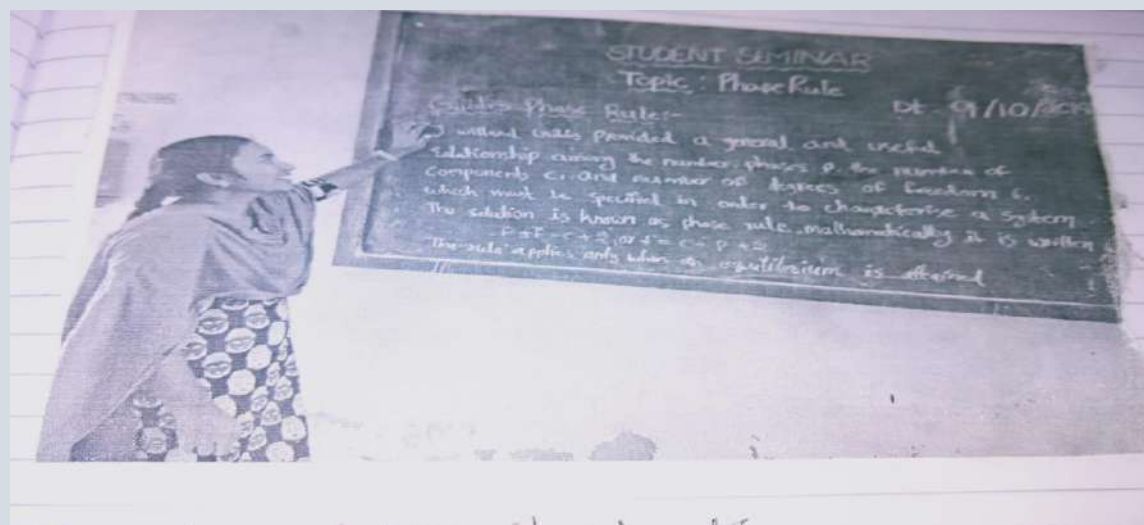 STUDENT SEMINAR
Topic : Phase Rule
Dt - 09/10/2019
Gibbs Phase Rule:-
willard Gibbs provided a general and useful
relationship among the number phases P, the number of
components C, and number of degrees of freedom F,
which must be specified in order to characterise a system.
The relation is known as phase rule. mathematically it is written
P+F = C+2, or F = C-P+2
The rule applies only when an equilibrium is attained